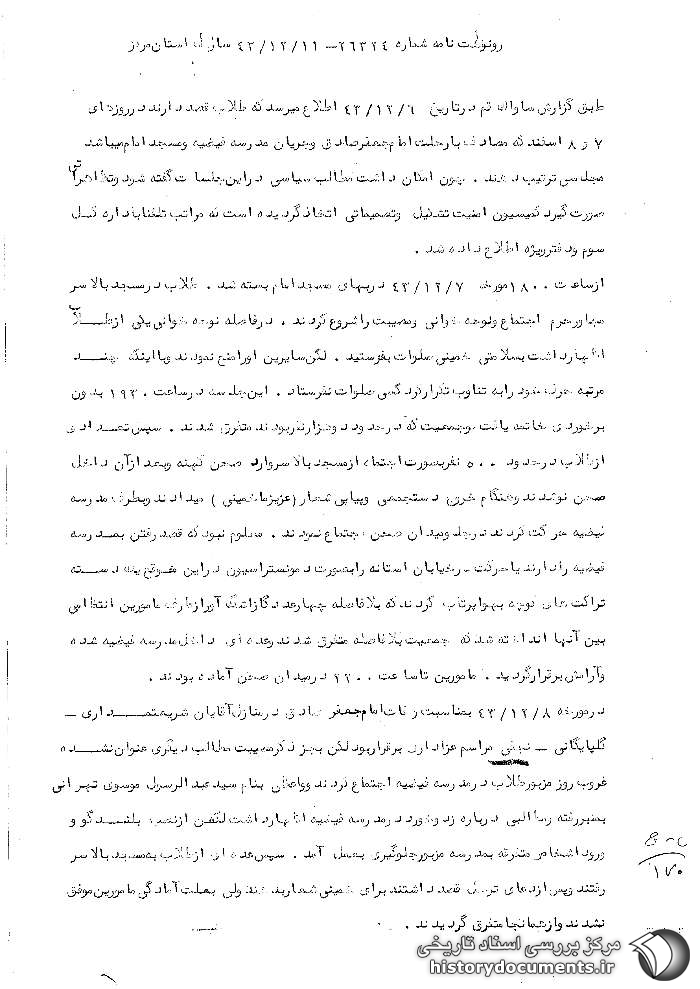 رونوشت نامه شماره ۲۶۳۲۴ــ ۴۳/۱۲/۱۱ استان مرکز
طبق گزارش ساواک قم در تاریخ ۴۳/۱۲/۶ اطلاع میرسد که طلاب قصد دارند در روزهای
۷ و ۸ اسفند که مصادف با رحلت امام جعفر صادق و جریان مدرسه فیضیه و مسجد امام میباشد
مجلسی ترتیب دهند . چون امکان داشت مطالب سیاسی در این جلسات گفته شود و تظاهراتی
صورت گیرد کمیسیون امنیت تشکیل و تصمیماتی اتخاذ گردیده است که مراتب تلفنا باداره کل
سوم و دفتر ویژه اطلاع داده شد .
از ساعت ۱۸۰۰ مورخه ۴۳/۱۲/۷ دربهای مسجد امام بسته شد . طلاب در مسجد بالاسر
مجاور حرم اجتماع و نوحه خوانی و مصیبت را شروع کردند . در فاصله نوحه خوانی یکی از طلاب
اظهار داشت بسلامتی خمینی صلوات بفرستید . لکن سایرین او را منع نمودند و با اینکه چند
مرتبه حرف خود را به تناوب تکرار کرد کسی صلوات نفرستاد . این جلسه در ساعت ۱۹۳۰ بدون
برخوردی خاتمه یافت و جمعیت که در حدود دو هزار نفر بودند متفرق شدند . سپس تعدادی
از طلاب در حدود ۵۰۰ نفر بصورت اجتماع از مسجد بالاسر وارد صحن کهنه و بعد از آن داخل
صحن نو شدند و هنگام خروج دستجمعی و پیاپی شعار (عزیز ما خمینی ) میدادند و بطرف مدرسه
فیضیه حرکت کردند در جلو میدان صحن اجتماع نمودند . معلوم نبود که قصد رفتن بمدرسه
فیضیه را دارند یا حرکت در خیابان آستانه را بصورت دمونستراسیون در این موقع یک دسته
تراکت های نوحه بهوا پرتاب کردند که بلافاصله چهار عدد گاز اشک آور از طرف مامورین انتظامی
بین آنها انداخته شد که جمعیت بلافاصله متفرق شدند و عده ای داخل مدرسه فیضیه شده
و آرامش برقرار گردید . مامورین تا ساعت ۲۲۰۰ در میدان صحن آماده بودند .
در مورخه ۴۳/۱۲/۸ بمناسبت وفات امام جعفر صادق در منازل آقایان شریعتمداری ــ
گلپایگانی ــ نجفی مراسم عزاداری برقرار بود لکن بجز ذکر مصیبت مطالب دیگری عنوان نشده
غروب روز مزبور طلاب در مدرسه فیضیه اجتماع کردند و واعظی بنام سید عبدالرسول موسوی تهرانی
بمنبر رفته و مطالبی درباره زد و خورد در مدرسه فیضیه اظهار داشت لکن از نصب بلندگو و
ورود اشخاص متفرقه بمدرسه مزبور جلوگیری بعمل آمد . سپس عده ای از طلاب بمسجد بالاسر
رفتند و پس از دعای توسل قصد داشتند برای خمینی شعار بدهند ولی بعلت آمادگی مامورین موفق
نشدند و از همانجا متفرق گردیدند .
۱۷۰
مرکز بررسی اسناد تاریخی
historydocuments.ir